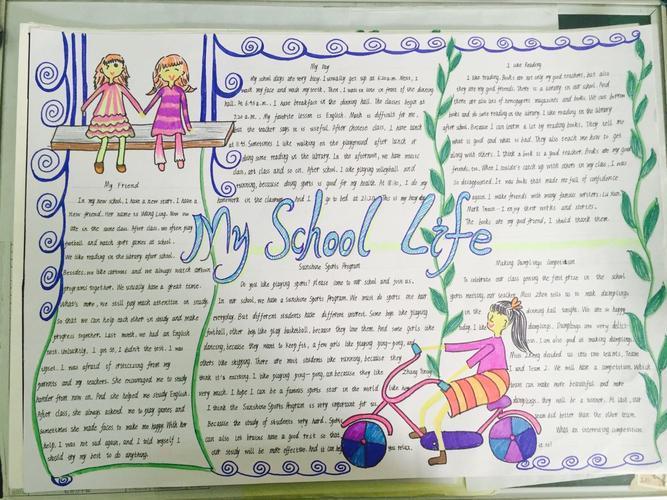 My School Life
My Day
My school days are very busy. I usually get up at 6:20 a.m. Next, I
wash my face and wash my teeth. Then, I wait in line in front of the dinning
hall. At 6:45 a.m. I have breakfast in the dinning hall. The classes begin at
7:20 a.m. My favorite lesson is English. Math is difficult for me,
but the teacher says it is useful. After chinese class, I have lunch
at 11:45. Sometimes I like walking on the playground after lunch or
doing some reading in the library. In the afternoon, we have music
class, art class and so on. After school, I like playing volleyball and
running, because doing sports is good for my health. At I do my
homework in the classroom. And I go to bed at 21:20. This is my busy day
I Like Reading
I like reading. Books are not only my good teachers, but also
they are my good friends. There is a library in our school. And
there are also lots of newspapers magazines and books. We can borrow
books and do some reading in the library. I like reading in the library
after school. Because I can learn a lot by reading books, They tell me
what is good and what is bad. They also teach me how to get
along with others. I think a book is a good teacher. Books are my good
friends, too. When I couldn't catch up with others in my class, I was
so disappointed. It was books that made me full of confidence
again. I make friends with many famous writers: Lu Xun,
Mark Twain— I enjoy their works and stories.
The books are my good friend, I should thank them.
My Friend
In my new school, I have a new start. I have a
new friend. Her name is Wang Ling. Now we
are in the same class. After class, we often play
football and watch sports games at school.
We like reading in the library after school.
Besides, we like cartoons and we always watch cartoon
programs together. We usually have a great time.
What's more, we still pay much attention on study.
So that we can help each other in study and make
progress together. Last month, we had an English
test. Unluckily, I got 50, I didn't the test. I was
upset. I was afraid of criticizing from my
parents and my teachers. She encouraged me to study
harder from now on. And she helped me study English.
After class, she always asked me to play games and
sometimes she made faces to make me happy. With her
help, I was not sad again, and I told myself I
should try my best to do anything.
Sunshine Sports Program
Do you like playing sports? Please come to our school and join us.
In our school, we have a Sunshine Sports Program. We must do sports one hour
everyday. But different students have different interest. Some boys like playing
football, other boys like play basketball, because they love them. And some girls like
dancing, because they want to keep fit, a few girls like playing ping-pong, and
others like skipping. There are most students like running, because they
think it's relaxing. I like playing ping-pong, because they like Zhang Yining
very much. I hope I can be a famous sports star in the world like her.
I think the Sunshine Sports Program is very important for us.
Because the study of students very hard. Sports
can also let brains have a good rest so that
our study will be more effective. And it can help you relax.
Making Dumplings Competition
To celebrate our class getting the first prize in the school
sports meeting, our teacher Miss Zhen tells us to make dumplings
in the dinning hall tonight. We are so happy
today. I like dumplings. Dumplings are very delici-
ous. I am also good at making dumplings.
Miss Zheng devided us into two teams, Team
1 and Team 2. We will have a competition. Which
team can make more beautiful and more
dumplings, they will be a winner. At last, our
team did better than the other team.
What an interesting competition
it is!